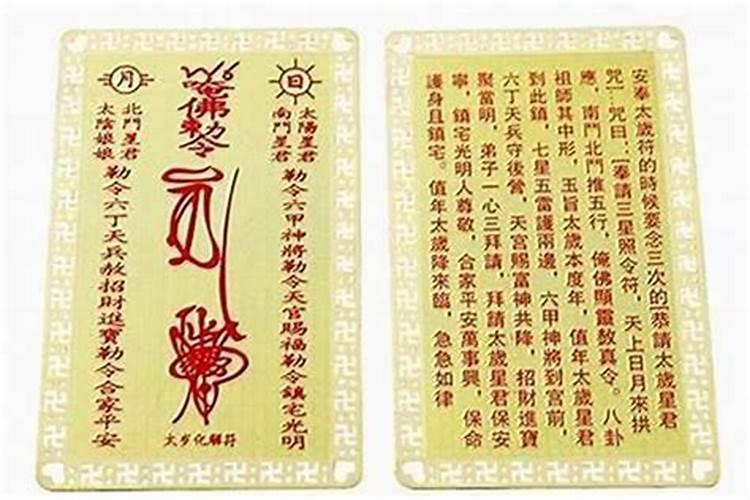 日
太陽星君
南鬥星君
勒令六甲神將勒令天官賜福勒令鎮宅光明
唵佛勅令
太岁化解符
月
北鬥星君
太陰娘娘
勒令六丁天兵赦招財進寶勒令合家平安
安奉太歲符的時候要念三次的[恭請太歲星君
咒]:咒曰:[奉請三星照令符，天上日月來拱
應，南鬥北鬥推五行，俺佛顯靈敫真令。八卦
祖師其中形，玉旨太歲本度年，值年太歲星君
到此鎮，七星五雷護兩邊，六甲神將到宮前，
六丁天兵守後營，天宮賜富神共降，招財進寶
聚當明，弟子一心三拜請，拜請太歲星君保安
寧，鎮宅光明人尊敬，合家平安萬事興，保命
護身且鎮宅。值年太歲降來臨，急急如律